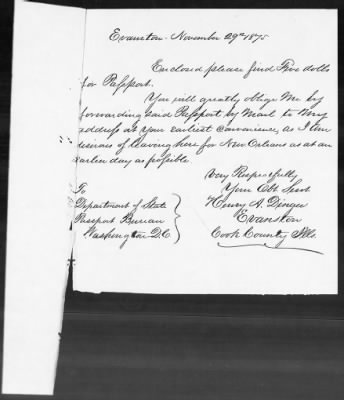 Evanston November 29th 1875
Enclosed please find Five dolls
for Passport.
You will greatly oblige Me by
forwarding Said Passport by Mail to My
address at your earliest Convenience, as I Am
desirous of leaving here for New Orleans at an
Earlier day as possible
Very Respectfully
Your Obt Servt
Henry A. Dinger
Evanston
Cook County Ills.
To
Department of State
Passport Bureau
Washington D.C.